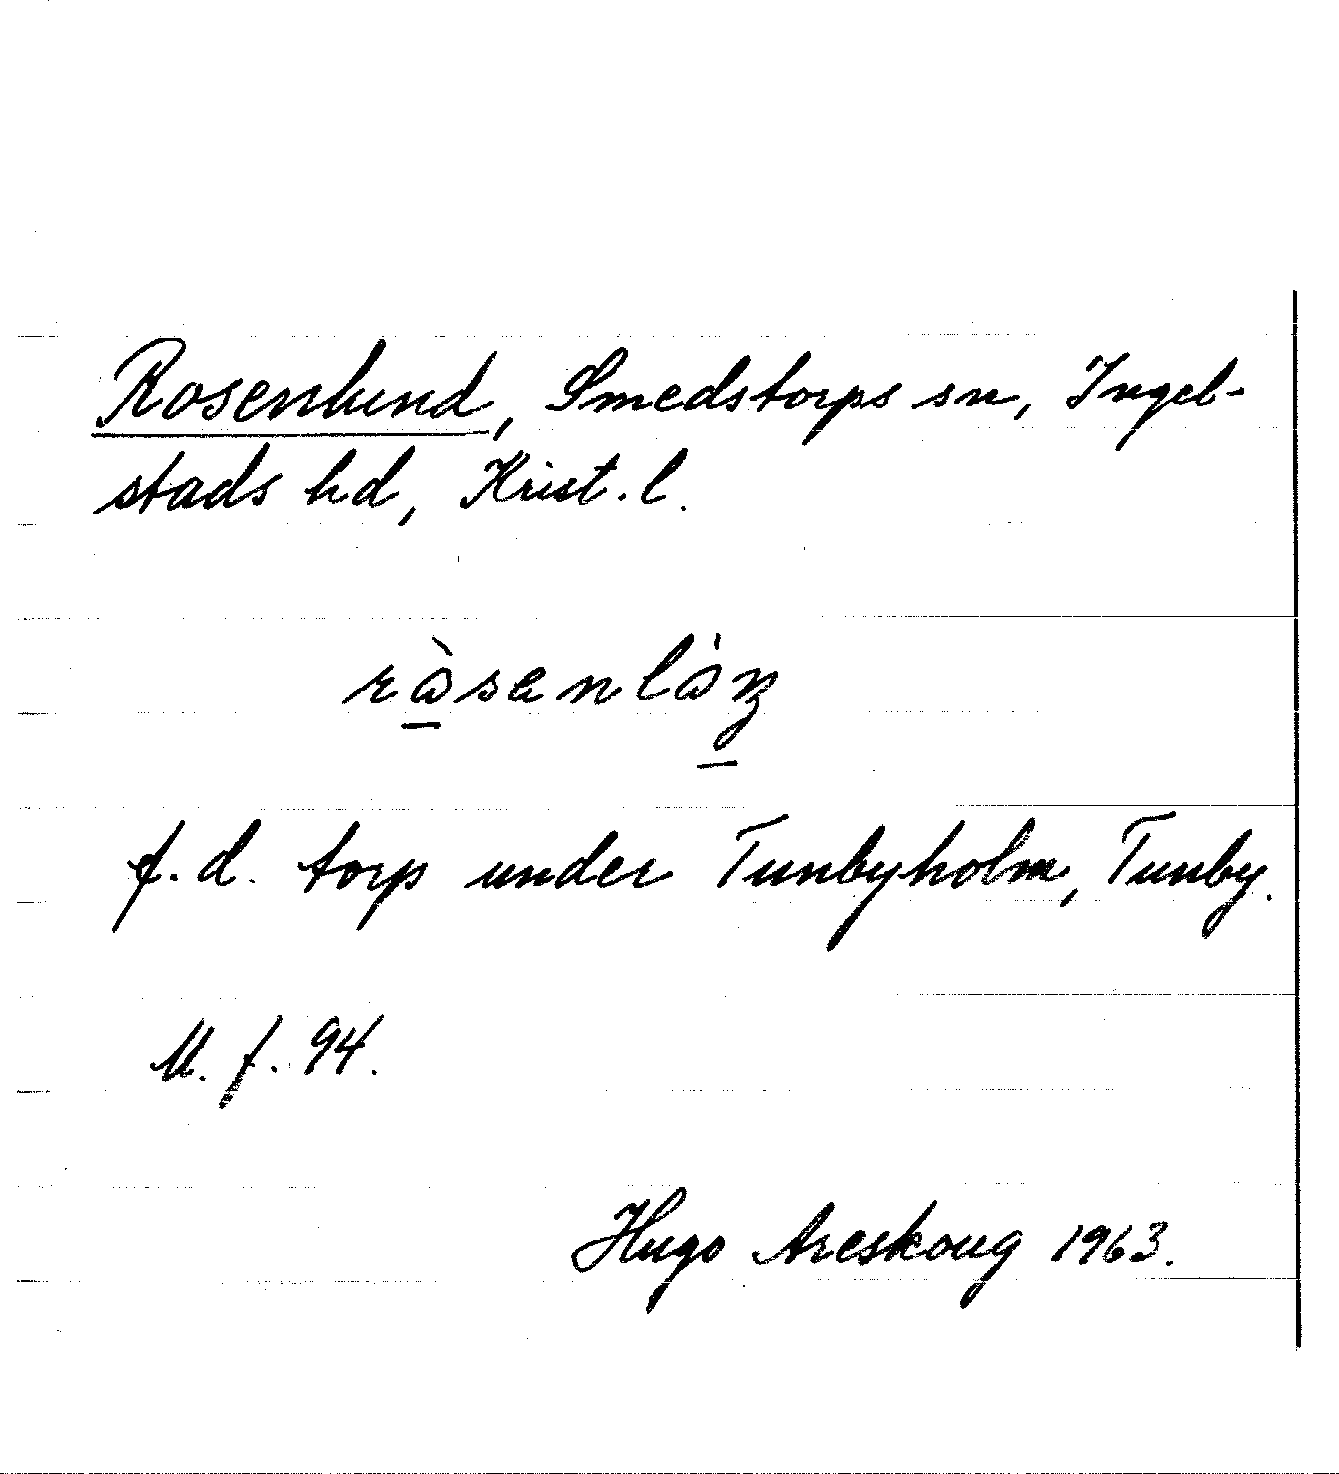 Rosenlund, Smedstorps sn, Ingel-
stads hd, Krist. l.
f. d. torp under Tunbyholm, Tunby.
M. f. 94.
Hugo Areskoug 1963.